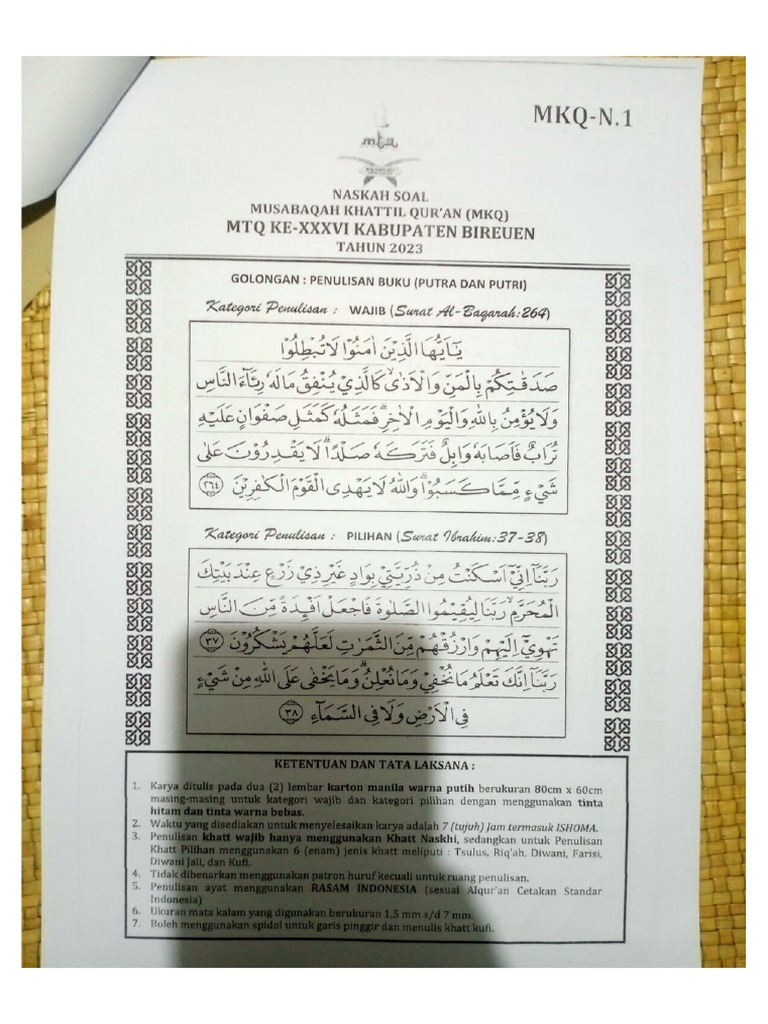 MKQ-N.1
mtq
NASKAH SOAL
MUSABAQAH KHATTIL QUR'AN (MKQ)
MTQ KE-XXXVI KABUPATEN BIREUEN
TAHUN 2023
GOLONGAN : PENULISAN BUKU (PUTRA DAN PUTRI)
Kategori Penulisan : WAJIB (Surat Al-Baqarah:264)
يٰٓاَيُّهَا الَّذِيْنَ اٰمَنُوْا لَا تُبْطِلُوْا
صَدَقٰتِكُمْ بِالْمَنِّ وَالْاَذٰىۙ كَالَّذِيْ يُنْفِقُ مَالَهٗ رِئَاۤءَ النَّاسِ
وَلَا يُؤْمِنُ بِاللّٰهِ وَالْيَوْمِ الْاٰخِرِۗ فَمَثَلُهٗ كَمَثَلِ صَفْوَانٍ عَلَيْهِ
تُرَابٌ فَاَصَابَهٗ وَابِلٌ فَتَرَكَهٗ صَلْدًاۗ لَا يَقْدِرُوْنَ عَلٰى
شَيْءٍ مِّمَّا كَسَبُوْاۗ وَاللّٰهُ لَا يَهْدِى الْقَوْمَ الْكٰفِرِيْنَ ٢٦٤
Kategori Penulisan : PILIHAN (Surat Ibrahim:37-38)
رَبَّنَآ اِنِّيْٓ اَسْكَنْتُ مِنْ ذُرِّيَّتِيْ بِوَادٍ غَيْرِ ذِيْ زَرْعٍ عِنْدَ بَيْتِكَ
الْمُحَرَّمِۙ رَبَّنَا لِيُقِيْمُوا الصَّلٰوةَ فَاجْعَلْ اَفْـِٕدَةً مِّنَ النَّاسِ
تَهْوِيْٓ اِلَيْهِمْ وَارْزُقْهُمْ مِّنَ الثَّمَرٰتِ لَعَلَّهُمْ يَشْكُرُوْنَ ٣٧
رَبَّنَآ اِنَّكَ تَعْلَمُ مَا نُخْفِيْ وَمَا نُعْلِنُۗ وَمَا يَخْفٰى عَلَى اللّٰهِ مِنْ شَيْءٍ
فِى الْاَرْضِ وَلَا فِى السَّمَاۤءِ ٣٨
KETENTUAN DAN TATA LAKSANA :
1. Karya ditulis pada dua (2) lembar karton manila warna putih berukuran 80cm x 60cm
masing-masing untuk kategori wajib dan kategori pilihan dengan menggunakan tinta
hitam dan tinta warna bebas.
2. Waktu yang disediakan untuk menyelesaikan karya adalah 7 (tujuh) Jam termasuk ISHOMA.
3. Penulisan khatt wajib hanya menggunakan Khatt Naskhi, sedangkan untuk Penulisan
Khatt Pilihan menggunakan 6 (enam) jenis khatt meliputi : Tsulus, Riq'ah, Diwani, Farisi,
Diwani Jali, dan Kufi.
4. Tidak dibenarkan menggunakan patron huruf kecuali untuk ruang penulisan.
5. Penulisan ayat menggunakan RASAM INDONESIA (sesuai Alqur'an Cetakan Standar
Indonesia)
6. Ukuran mata kalam yang digunakan berukuran 1,5 mm s/d 7 mm.
7. Boleh menggunakan spidol untuk garis pinggir dan menulis khatt kufi.